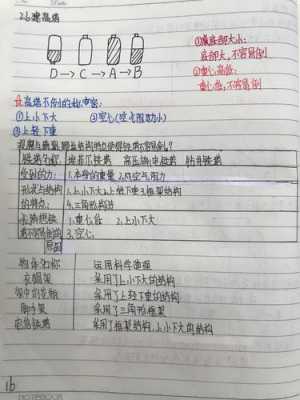 2.6建高塔
①底部大小:
底部大,不容易倒
D→C→A→B
②重心高低:
重心低,不容易倒
☆高塔不倒的秘密:
①上小下大 ③空心(空气阻力小)
②上轻下重
铁塔名称 埃菲尔铁塔 高压输电铁塔
受到的力: 1.本身的重量 2.风空气阻力
形状与结构 1.上小下大 2.上轻下重 3.框架结构
的特点: 4.三角形构造
1.重心低 2.上小下大
3.空心
原因
物体名称 运用科学原理
采用了上小下大的结构
采用了上轻下重的结构
脚手架 采用了三角形框架
采用了框架结构,上小下大的结构
16
NOTEBOOK